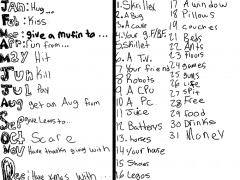 JAN: Hug...
Feb: Kiss
Mar: give a mufin to...
APr: run from...
MAY Hit
JUN Kill
JUL Pay
AUg get an Aug from
Sep: give Lewis to...
Oct Scare
Nov Have thanks giving with
Des: Have xmas with...
1. Skillet
2. A Bug
3. A cat
4. Your g.F/BF
5. Skillet
6. A T.V.
7. Your friend
8. Robots
9. A CPU
10 A PC
11 Juice
12 Batterys
13. horses
14 Your house
15 Shoes
16 Legos
17 A window
18 Pillows
19 couches
21 Beds
22 Ants
23 Floors
24 games
25 Guns
26 Life
27 spit
28 Free
29 food
30 Drinks
31 Money